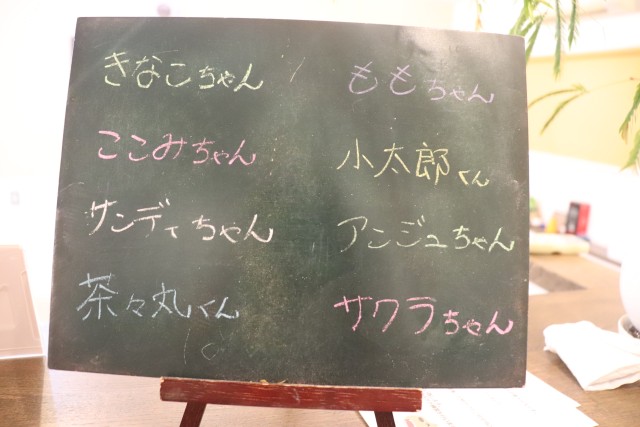 きなこちゃん
ももちゃん
ここみちゃん
小太郎くん
サンディちゃん
アンジュちゃん
茶々丸くん
サクラちゃん